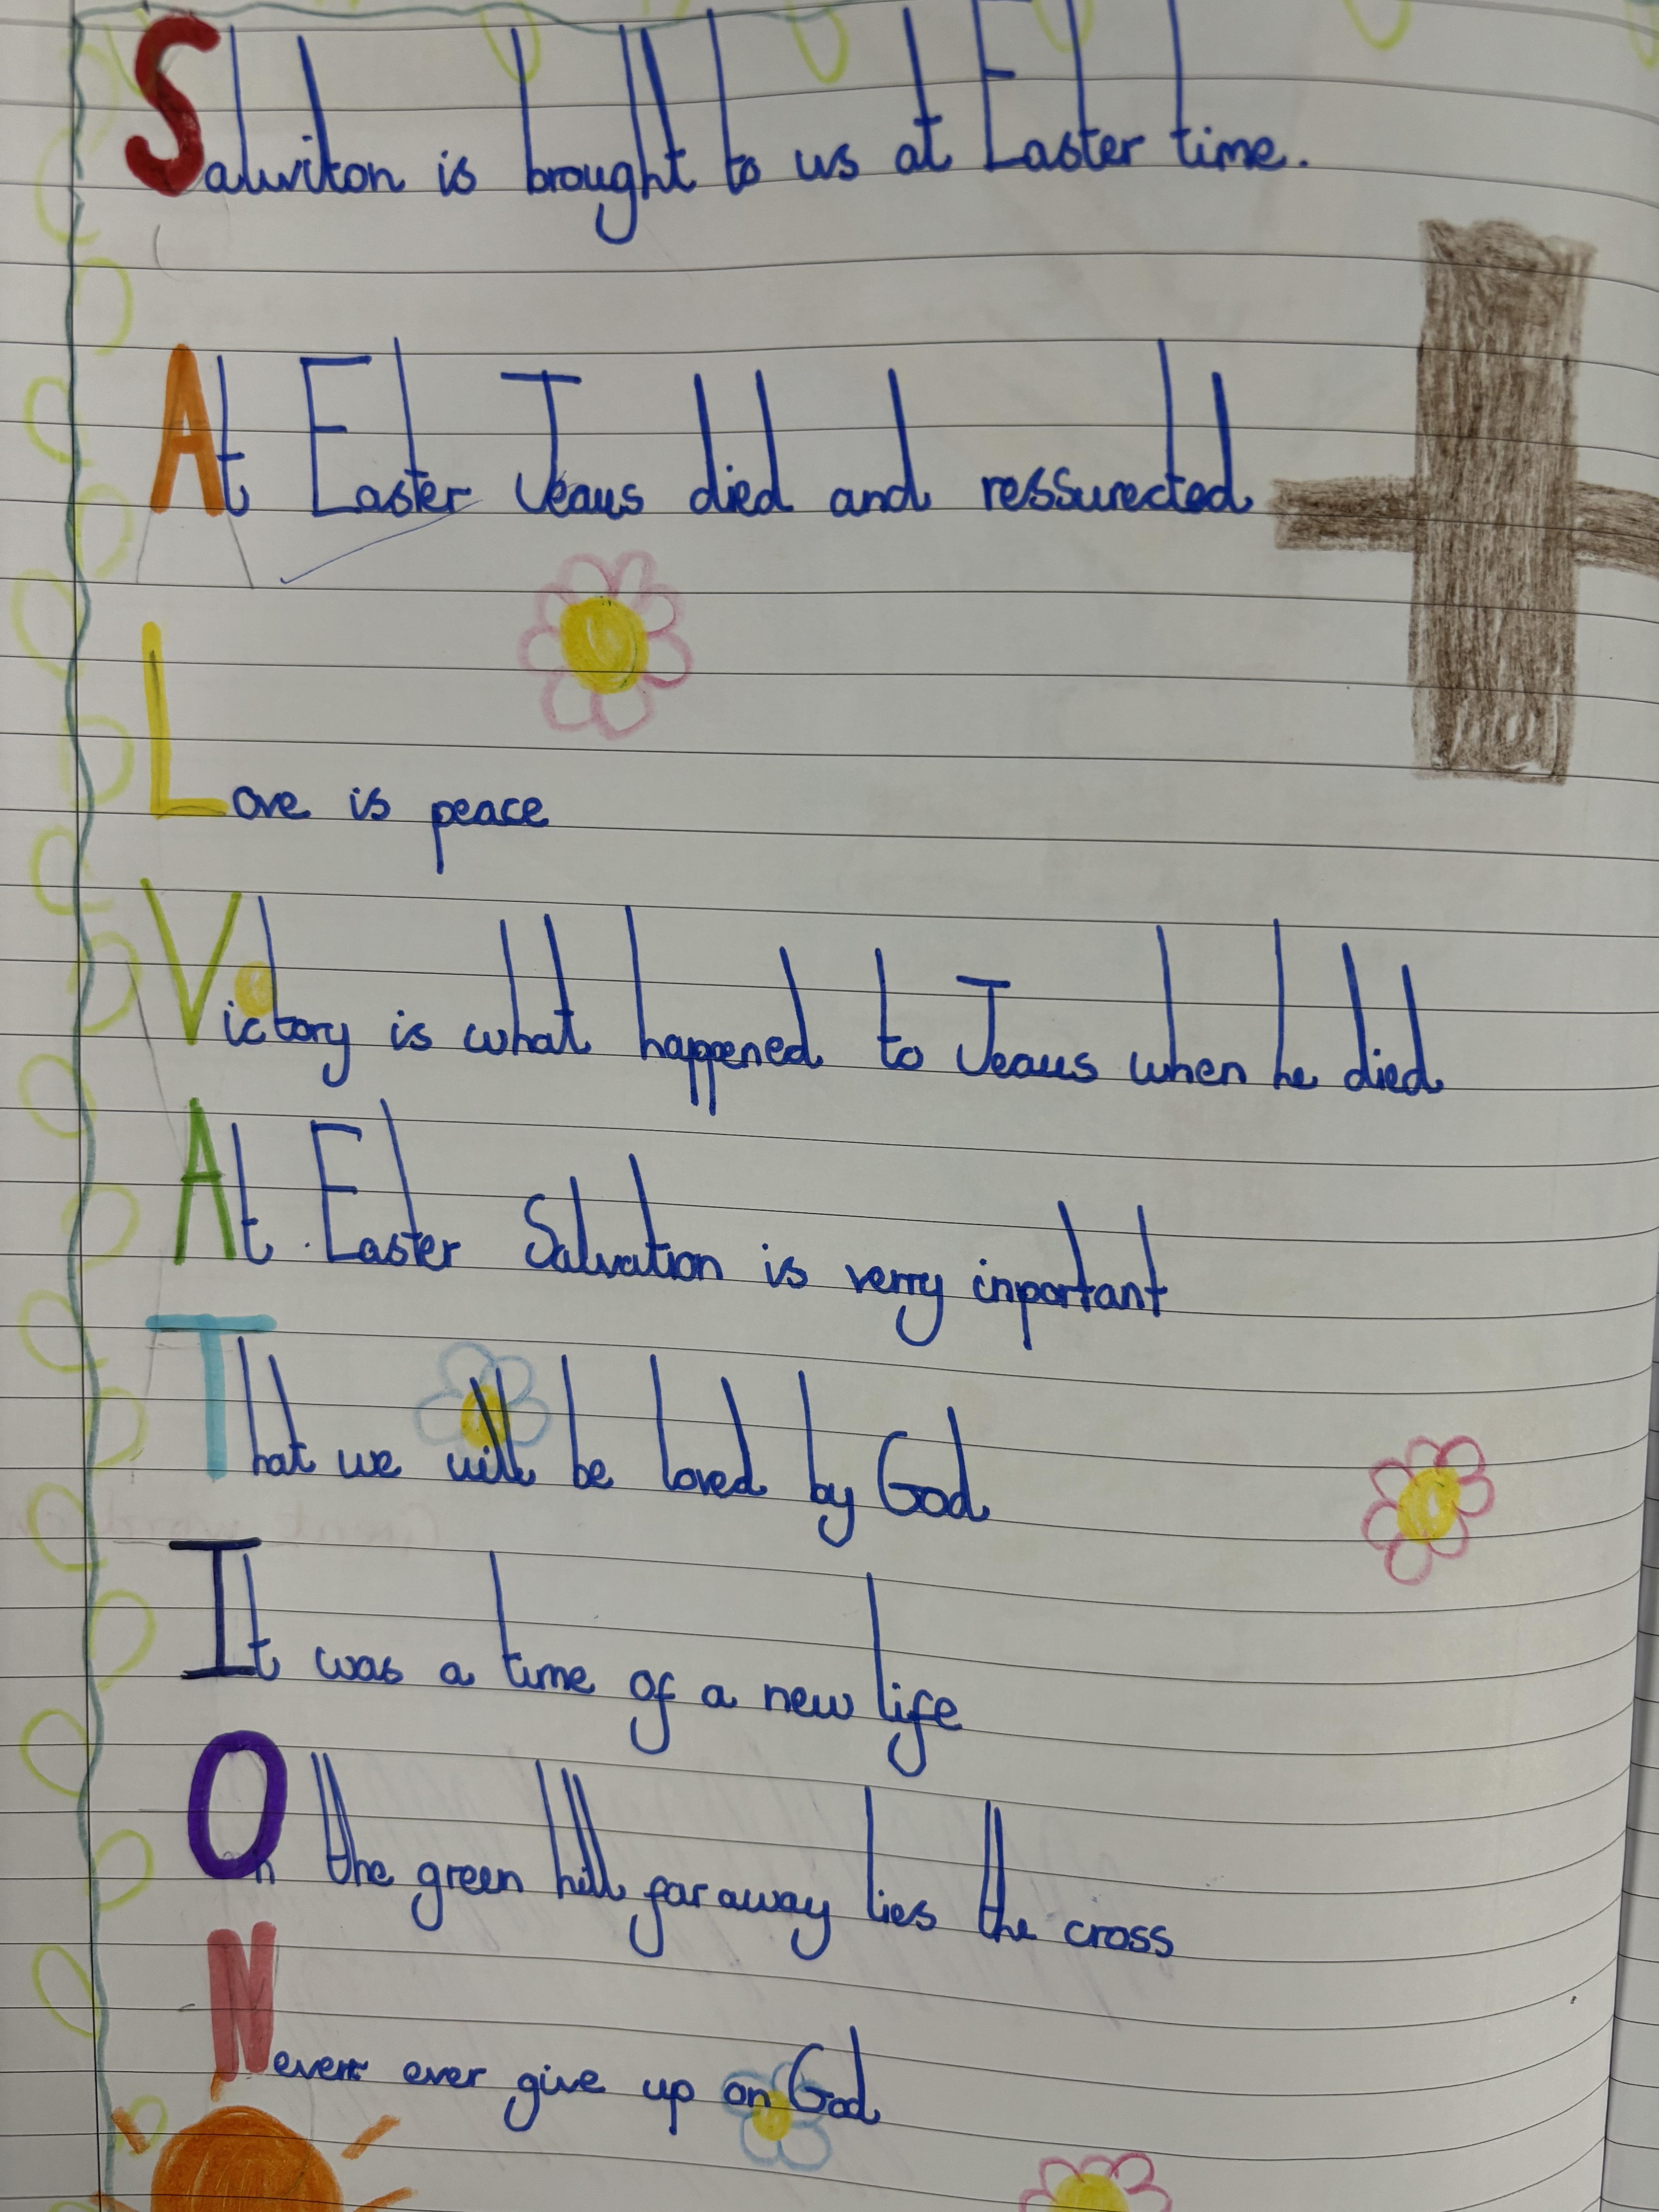 Salvition is brought to us at Easter time.
At Easter Jeaus died and ressurected
Love is peace
Victory is what happened to Jeaus when he died
At Easter Salvation is verry inportant
That we will be loved by God
It was a time of a new life
On the green hill far away lies the cross
Never ever give up on God